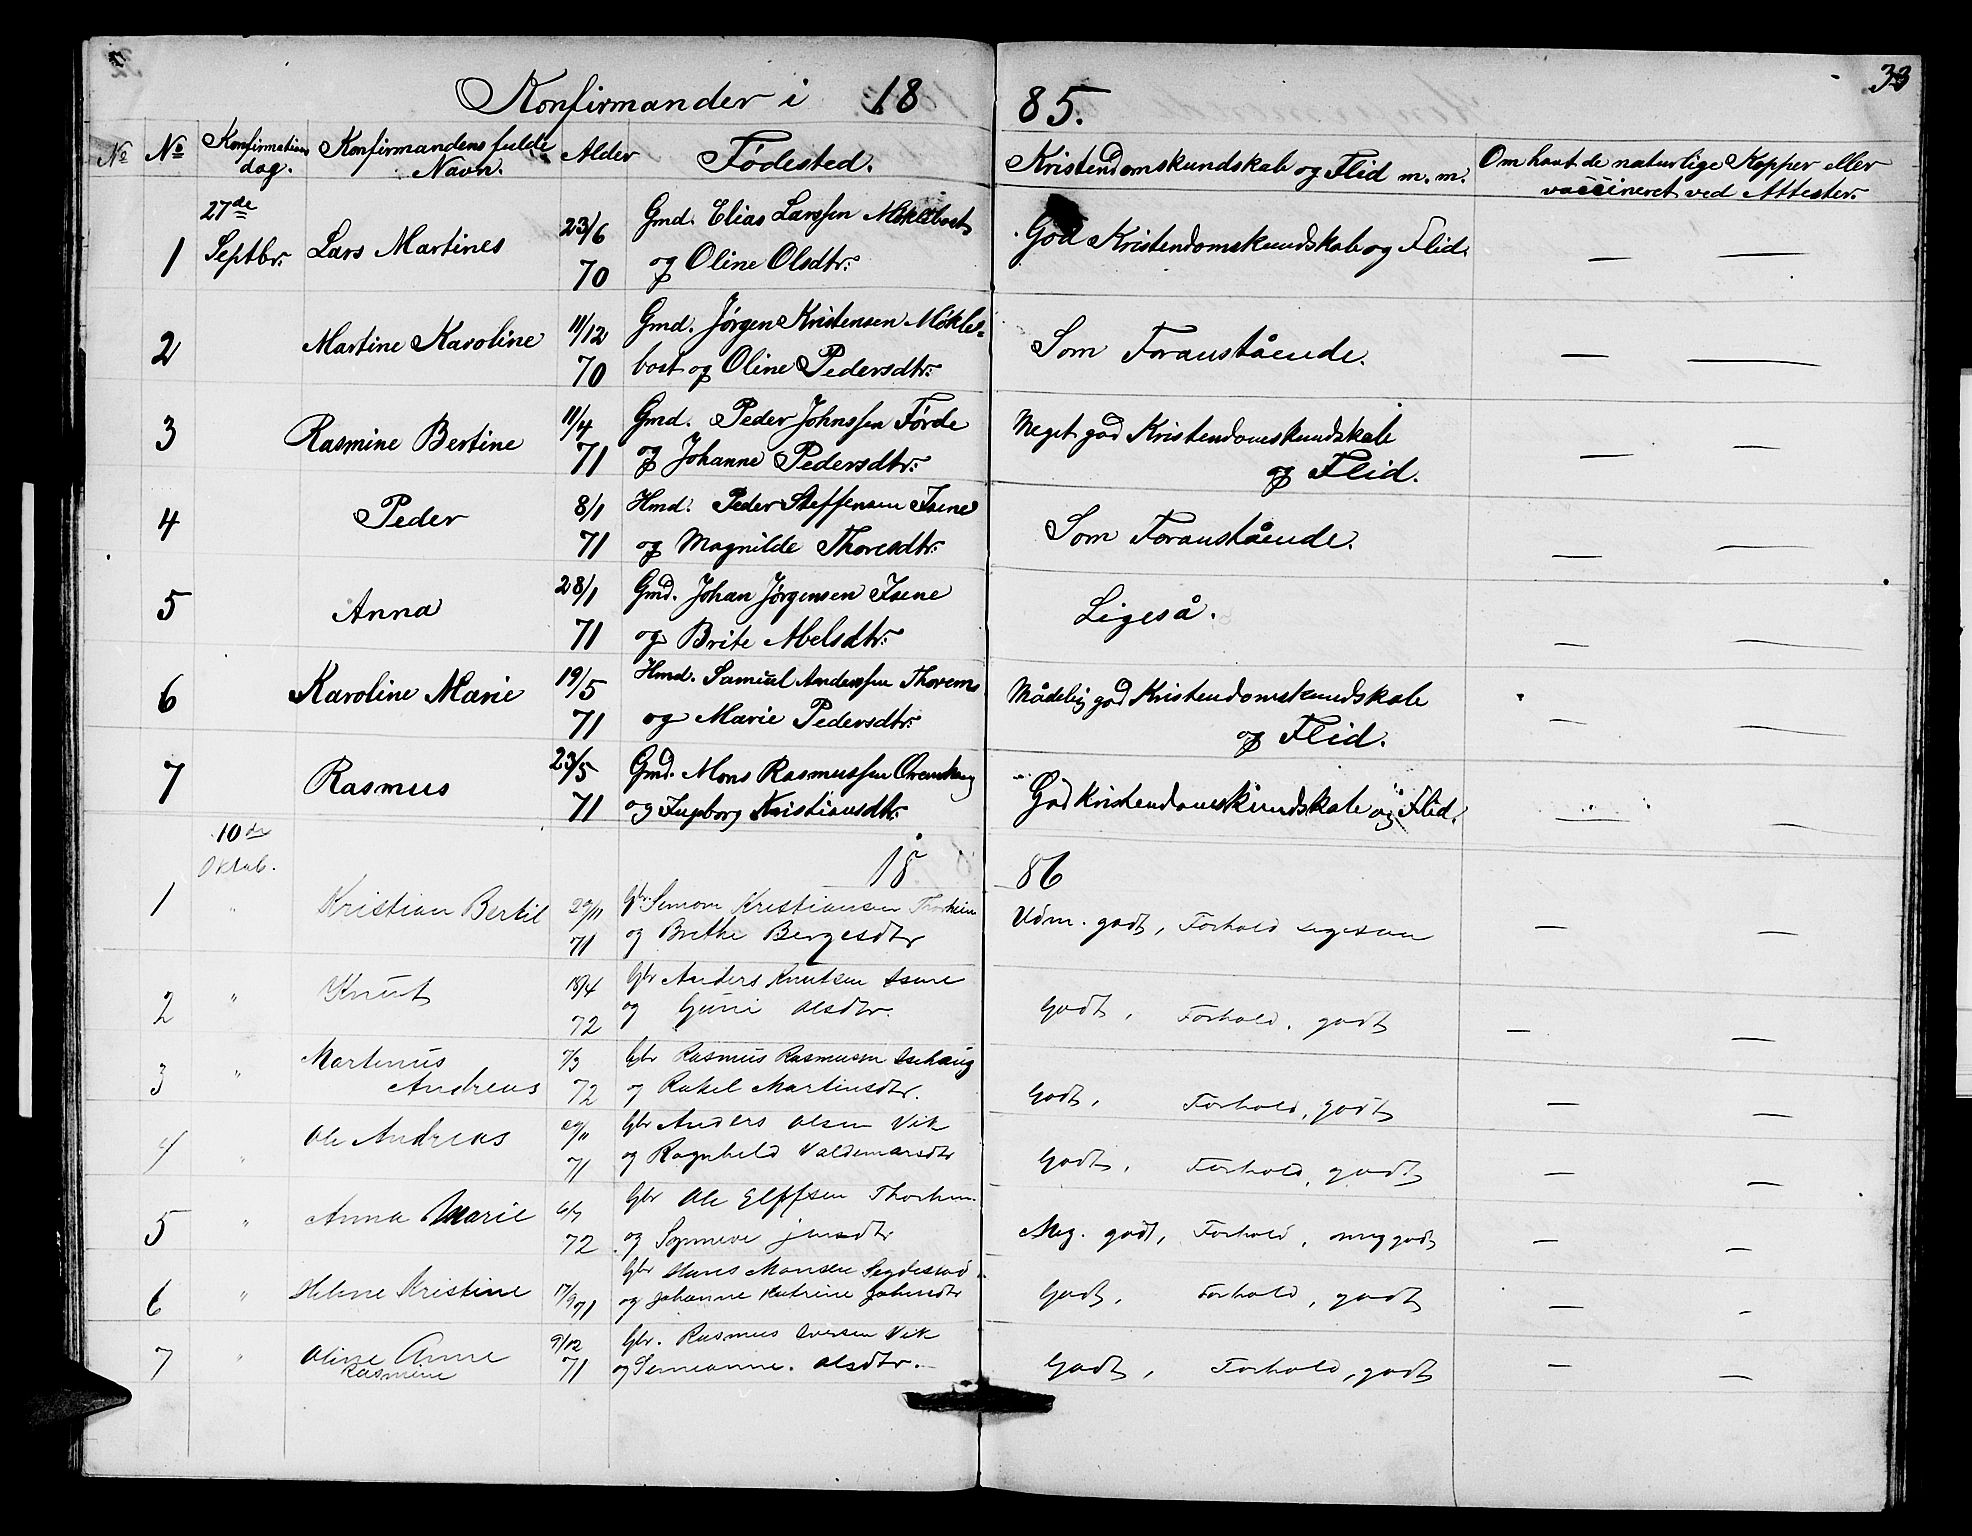 33
Konfirmander i 1885.
No No Konfirmations dag. Konfirmandens fulde Navn. Alder Fødested. Kristendomskundskab og Flid m. m. Om havt de naturlige Kopper eller vaccineret ved Attester.
1 27de Septbr. Lars Martines 23/6 70 Gmd. Elias Larssen Möklebost og Oline Olsdtr. God Kristendomskundskab og Flid. — —
2 Martine Karoline 11/12 70 Gmd. Jörgen Kristensen Möklebost og Oline Pedersdtr. Som Foranstående. — —
3 Rasmine Bertine 11/4 71 Gmd. Peder Johnssen Förde og Johanne Pedersdtr. Meget god Kristendomskundskab og Flid. — —
4 Peder 8/1 71 Hmd. Peder Steffensen Isene og Magnilde Thoresdtr. Som Foranstående. — —
5 Anna 28/1 71 Gmd. Johan Jörgensen Isene og Brite Abelsdtr. Ligeså. — —
6 Karoline Marie 19/5 71 Hmd. Samuel Anderssen Thorems og Marie Pedersdtr. Mådelig god Kristendomskundskab og Flid. — —
7 Rasmus 23/5 71 Gmd. Mons Rasmussen og Ingborg Kristiansdtr. God Kristendomskundskab og Flid. — —
10de Oktob.
1886
1 " Kristian Bertil 29/11 71 Gbr. Simon Kristiansen og Brithe Bergesdtr Udm. godt, Forhold ligesaa — —
2 " Knut 18/4 72 Gbr Anders Knutsen Isene og Guni Olsdtr. Godt, Forhold, godt — —
3 " Martinus Andreas 7/3 72 Gbr Rasmus Rasmusen og Rakel Martinsdtr. Godt, Forhold, godt — —
4 " Ole Andreas 71 Gbr Anders Olsen Vik og Ragnhild Valdemarsdtr Godt, Forhold, godt — —
5 " Anna Marie 6/7 72 Gbr Ole og Synneve Jensdtr Meg. godt, Forhold, meg godt — —
6 " Helene Kristine 17/9 71 Gbr Hans Monsen og Johanne Katrine Johnsdtr Godt, Forhold, godt — —
7 " Oline Anne Rasmine 9/12 71 Gbr. Rasmus Iversen Vik og Simeanne Olsdtr. Godt, Forhold, godt — —